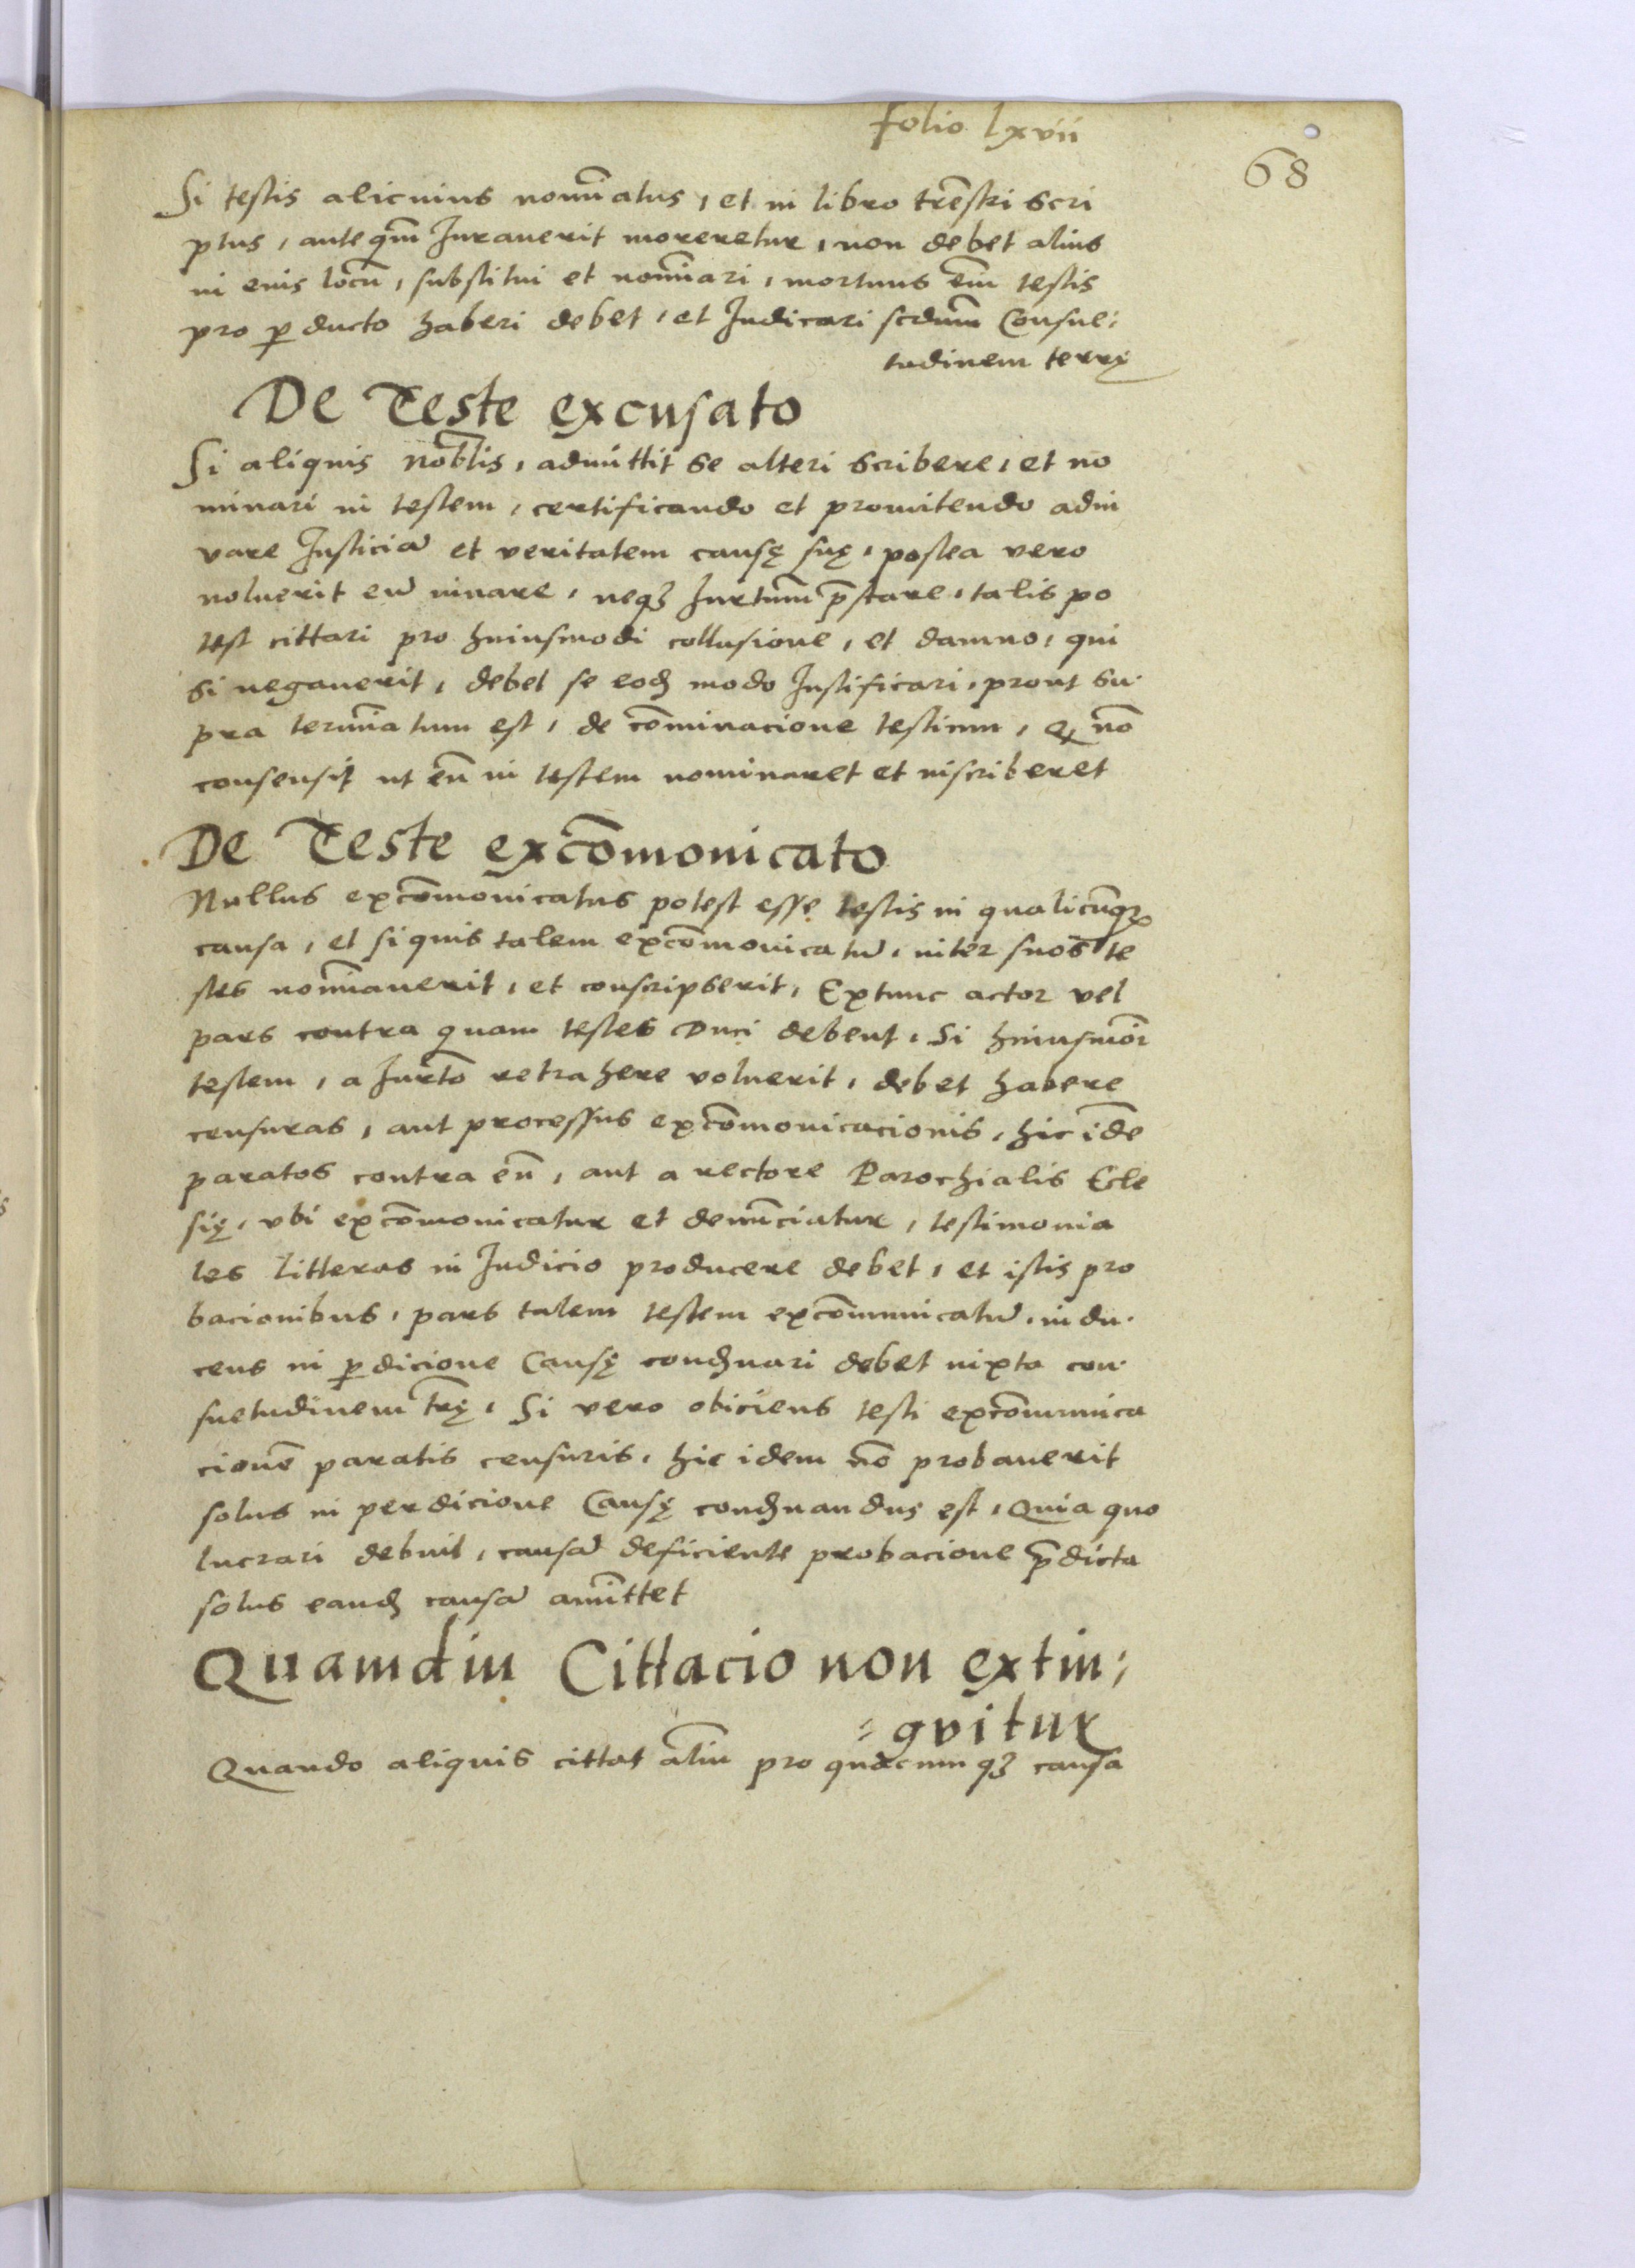 folio lxvii
68
Si testis alicuius nom̄iatus, et in libro tr̄estri scri
ptus, anteq̄m Iurauerit moreretur, non debet alius
in eius locū, substitui et nom̄iari, mortuus em̄ testis
pro ꝑducto haberi debet, et Iudicari scdum̄ Consue:
tudinem terrę
De Teste excusato
Si aliquis nob̄lis, admittit se alteri scribere, et no
minari in testem, certificando et promitendo adiu
vare Iusticiā et veritatem causę suę, postea vero
noluerit eū iuuare, neqꝫ Iurtum̄ p̄stare, talis po
test cittari pro huiusmodi collusione, et damno, qui
si negauerit, debet se eodꝫ modo Iustificari, prout su
pra term̄iatum est, de cōminacione testium, ꝙ nō
consensit ut eū in testem nominaret et inscriberet
De Teste excōmonicato
Nullus excōmonicatus potest esse testis in qualicūqꝫ
causa, et si quis talem excōmonicatū, inter suos te
stes nom̄iauerit, et conscripserit, Extunc actor vel
pars contra quam testes Duci debent, Si huiusmōi
testem, a Iurtō retrahere voluerit, debet habere
censuras, aut processus excōmonicacionis, hic idē
paratos contra eū, aut a rectore Parochialis Ecle
się, vbi excōmonicatur et denūciatur, testimonia
les litteras in Iudicio producere debet, et istis pro
bacionibus, pars talem testem excōmunicatū, indu
cens in ꝑdicione Causę condꝫnari debet iuxta con
suetudinem tr̄ę, Si vero obiciens testi excōmunica
cionē paratis censuris, hic idem nō probauerit
solus in perdicione Causę condꝫnandus est, Quia quo
lucrari debuit, causā deficiente probacione p̄dicta
solus eandꝫ causā amittet
Quamdiu Cittacio non extin:
:gvitur
Quando aliquis cittat aliū pro quacumqꝫ causa